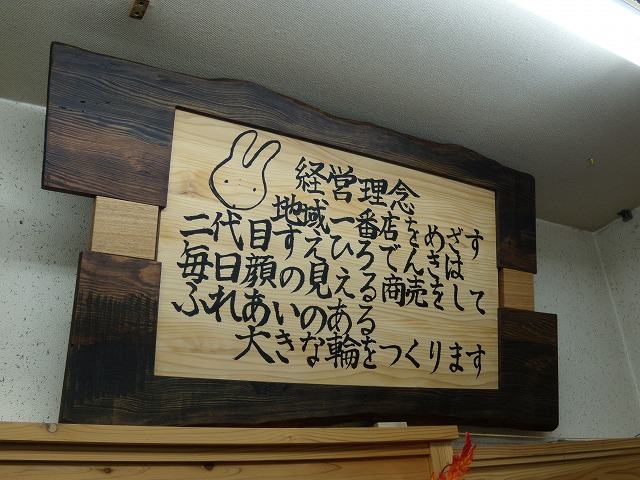 経営理念
地域一番店をめざす
二代目すえひろでんきは
毎日顔の見える商売をして
ふれあいのある
大きな輪をつくります